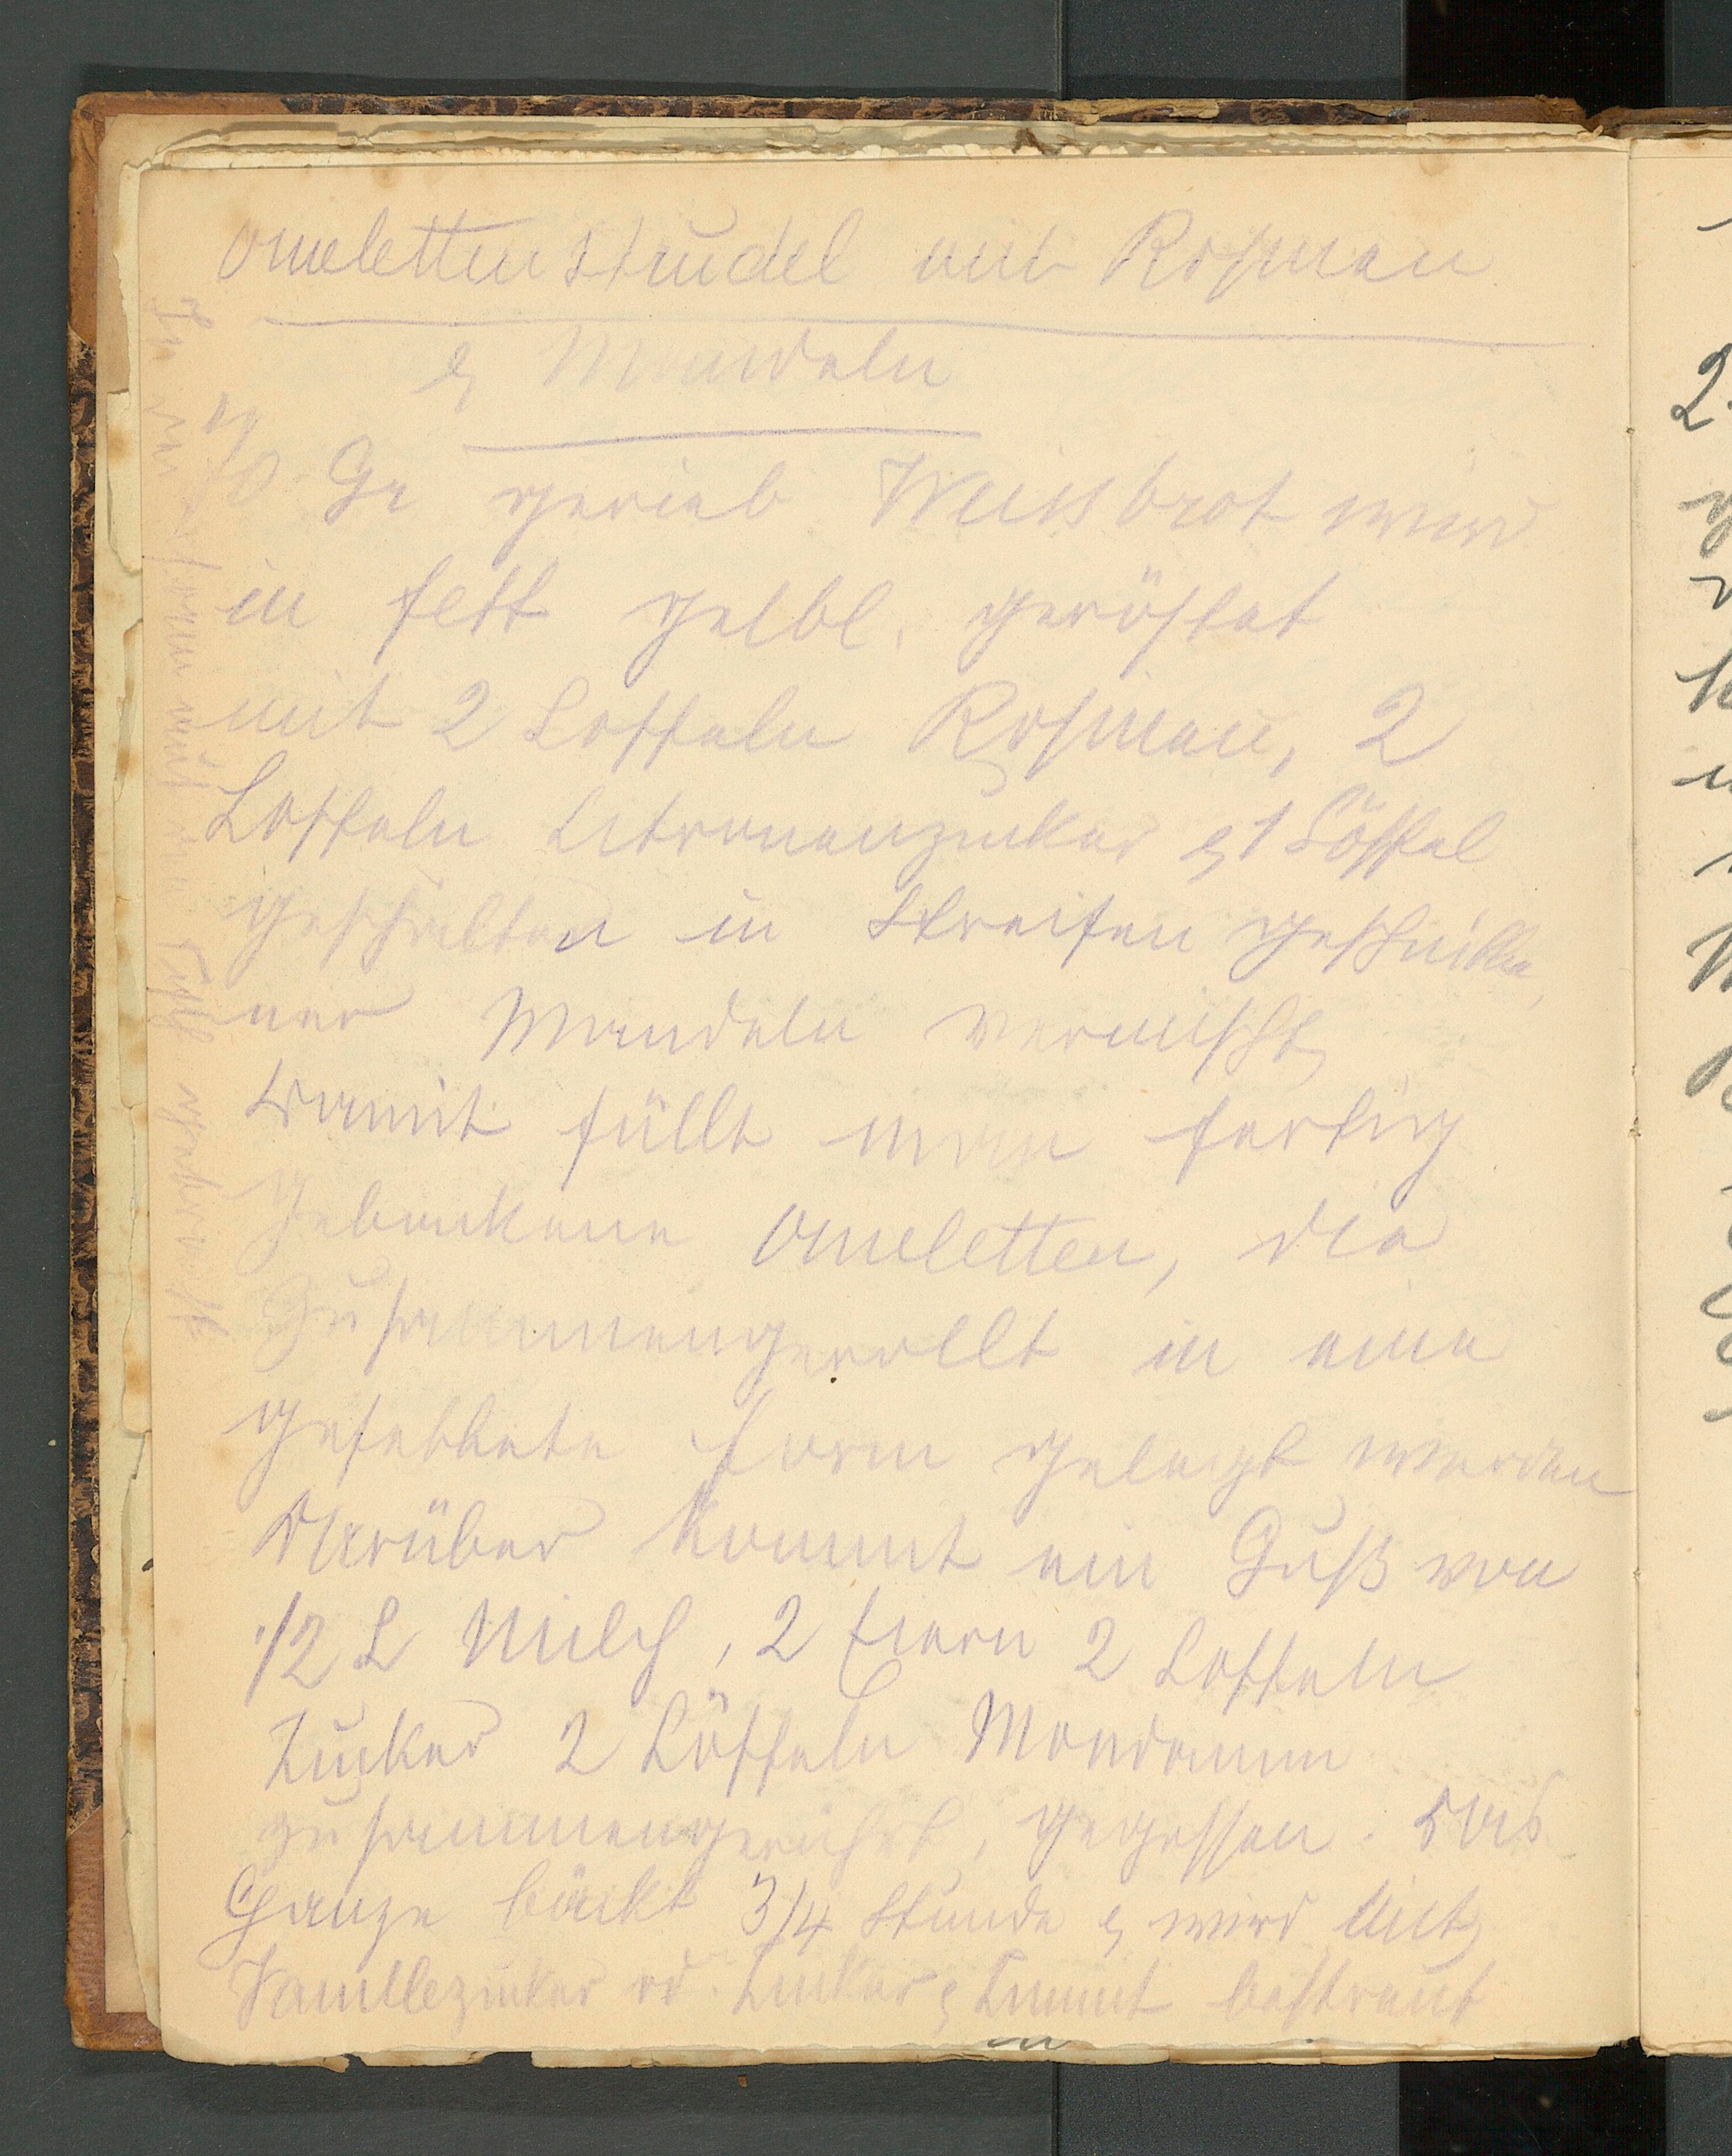 Omelettenstrudel mit Rosinen
& Mandeln
70 Gr gerieb Weissbrot wird
in fett gelbl. geröstet
mit 2 Loffeln Rosinen, 2
Loffeln Citronenzucker & 1 Löffel
geschälten in Streifen geschnitte
ner Mandeln vermischt
Damit füllt man fertig
gebackene Omeletten, die
Zusammengerollt in eine
gefettete Form gelegt werden
Darüber kommt ein Guß von
1/2 L Milch, 2 Eiern 2 Loffeln
Zucker 2 Löffeln Mondamin
zusammengerührt, gegossen. Das
Ganze bäckt 3/4 Stunde & wird mit
Vanillezucker od. Zucker & Zimmt bestreut